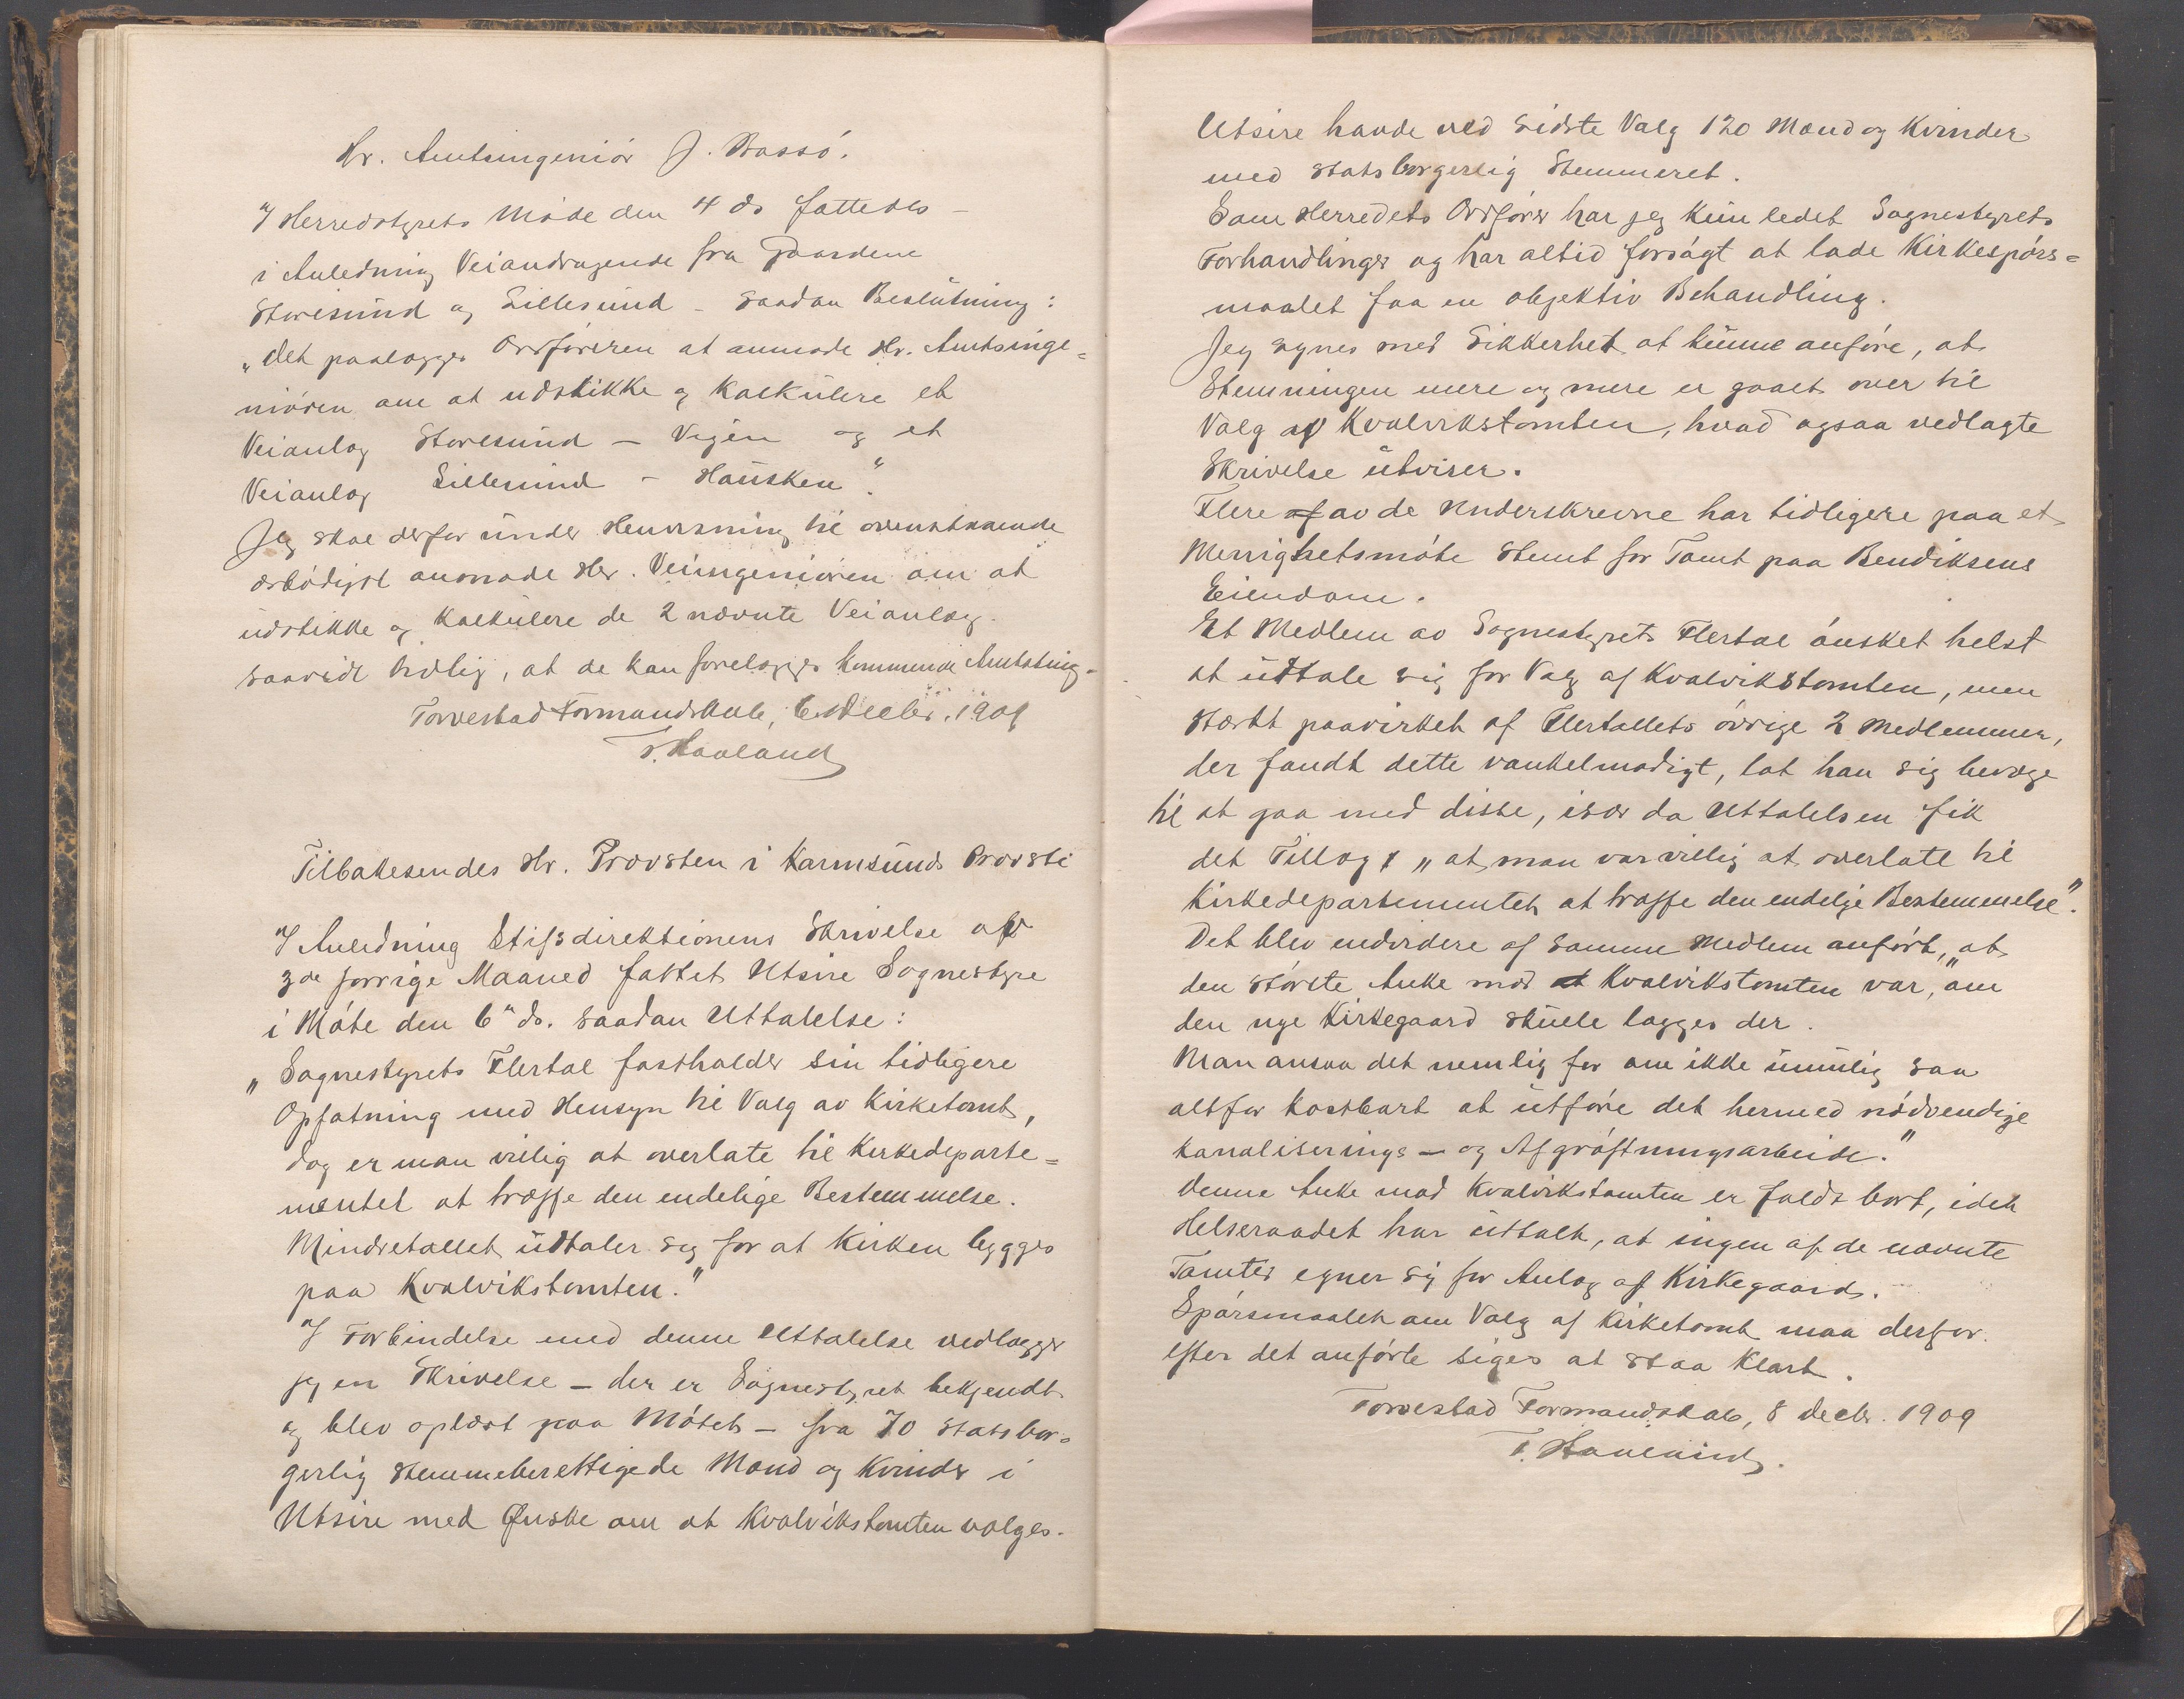 Hr. Amtsingeniör J. Bassö.
I Herredstyrets Möde den 4 ds fattedes -
i Anledning Veiandragende fra Gaardene
Storesund og Lillesund - saadan Beslutning:
"Det paalægges Ordföreren at anmode Hr. Amtsinge=
niören om at udstikke og kalkulere et
Veianlæg Storesund - Vigen og et
Veianlæg Lillesund - Hausken".
Jeg skal derfor under Henvisning til ovenstaaende
ærbödigst anmode Hr. Veiingeniören om at
udstikke og kalkulere de 2 nævnte Veianlæg
saavidt tidlig, at de kan forelægges kommende Amtsting.
Torvestad Formandskab, 6 Decbr. 1909
T. Haaland
Tilbakesendes Hr. Provsten i Karmsunds Provsti
I Anledning Stiftsdirektionens Skrivelse av
3de forrige Maaned fattet Utsire Sognestyre
i Möte den 6te ds. saadan Uttalelse:
"Sognestyrets Flertal fastholder sin tidligere
Opfatning med Hensyn til Valg av Kirketomt,
dog er man villig at overlate til Kirkedeparte=
mentet at træffe den endelige Bestemmelse.
Mindretallet udtaler sig for at Kirken bygges
paa Kvalvikstomten."
I Forbindelse med denne Uttalelse vedlægger
jeg en Skrivelse - der er Sognestyret bekjendt
og blev oplæst paa Mötet - fra 70 statsbor=
gerlig stemmeberettigede Mænd og Kvinder i
Utsire med Ønske om at Kvalvikstomten vælges.
Utsire havde ved sidste Valg 120 Mænd og Kvinder
med statsborgerlig Stemmeret.
Som Herredets Ordförer har jeg kun ledet Sognestyrets
Forhandlinger og har altid forsögt at lade Kirkespörs=
maalet faa en objektiv Behandling.
Jeg synes med Sikkerhet at kunne anföre, at
Stemningen mere og mere er gaaet over til
Valg av Kvalvikstomten, hvad ogsaa vedlagte
Skrivelse utviser.
Flere af av de Underskrevne har tidligere paa et
Menighetsmöte stemt for Tomt paa Bendiksens
Eiendom.
Et Medlem av Sognestyrets Flertal önsket helst
at udtale sig for Valg af Kvalvikstomten, men
stærkt paavirket af Flertallets övrige 2 Medlemmer,
der fandt dette vankelmodigt, lot han sig bevæge
til at gaa med disse, især da Uttalelsen fik
det Tillæg, "at man var villig at overlate til
Kirkedepartementet at træffe den endelige Bestemmelse".
Det blev endvidere af samme Medlem anfört, "at
den störste Anke mod at Kvalvikstomten var, "om
den nye Kirkegaard skulle lægges der.
Man ansaa det nemlig for om ikke umulig saa
altfor kostbart at utföre det hermed nödvendige
kanaliserings - og Afgröftningsarbeide."
Denne Anke mod Kvalvikstomten er faldt bort, idet
Helseraadet har uttalt, at ingen af de nævnte
Tomter egner sig for Anlæg af Kirkegaard.
Spörsmaalet om Valg af Kirketomt maa derfor
efter det anförte siges at staa klart.
Torvestad Formandskab, 8 decbr. 1909
T. Haaland.